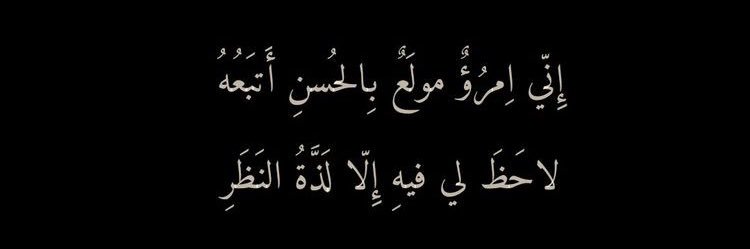 إِنّي اِمرُؤٌ مولَعٌ بِالحُسنِ أَتبَعُهُ
لا حَظَ لي فيهِ إِلّا لَذَّةُ النَظَرِ